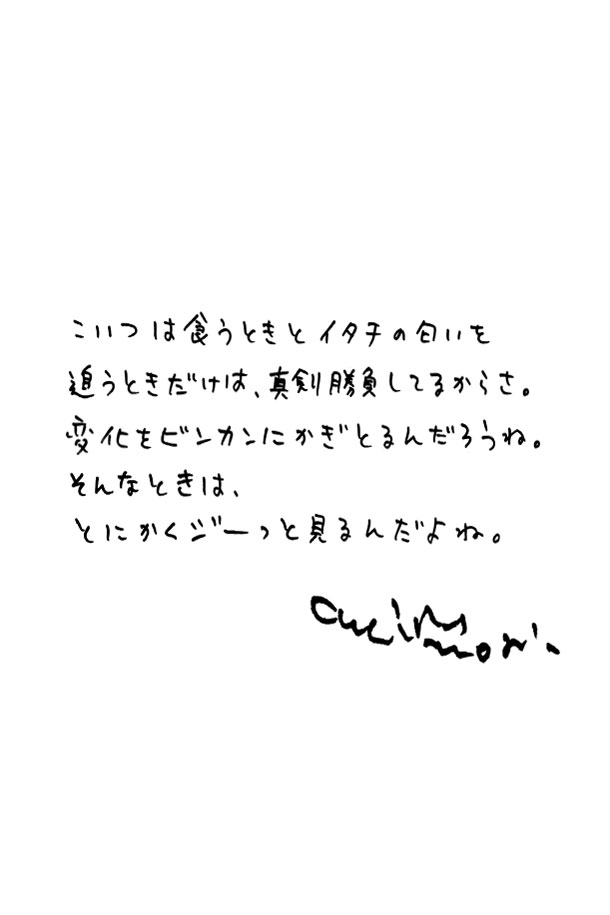 こいつは食うときとイタチの匂いを
追うときだけは、真剣勝負してるからさ。
変化をビンカンにかぎとるんだろうね。
そんなときは、
とにかくジーっと見るんだよね。